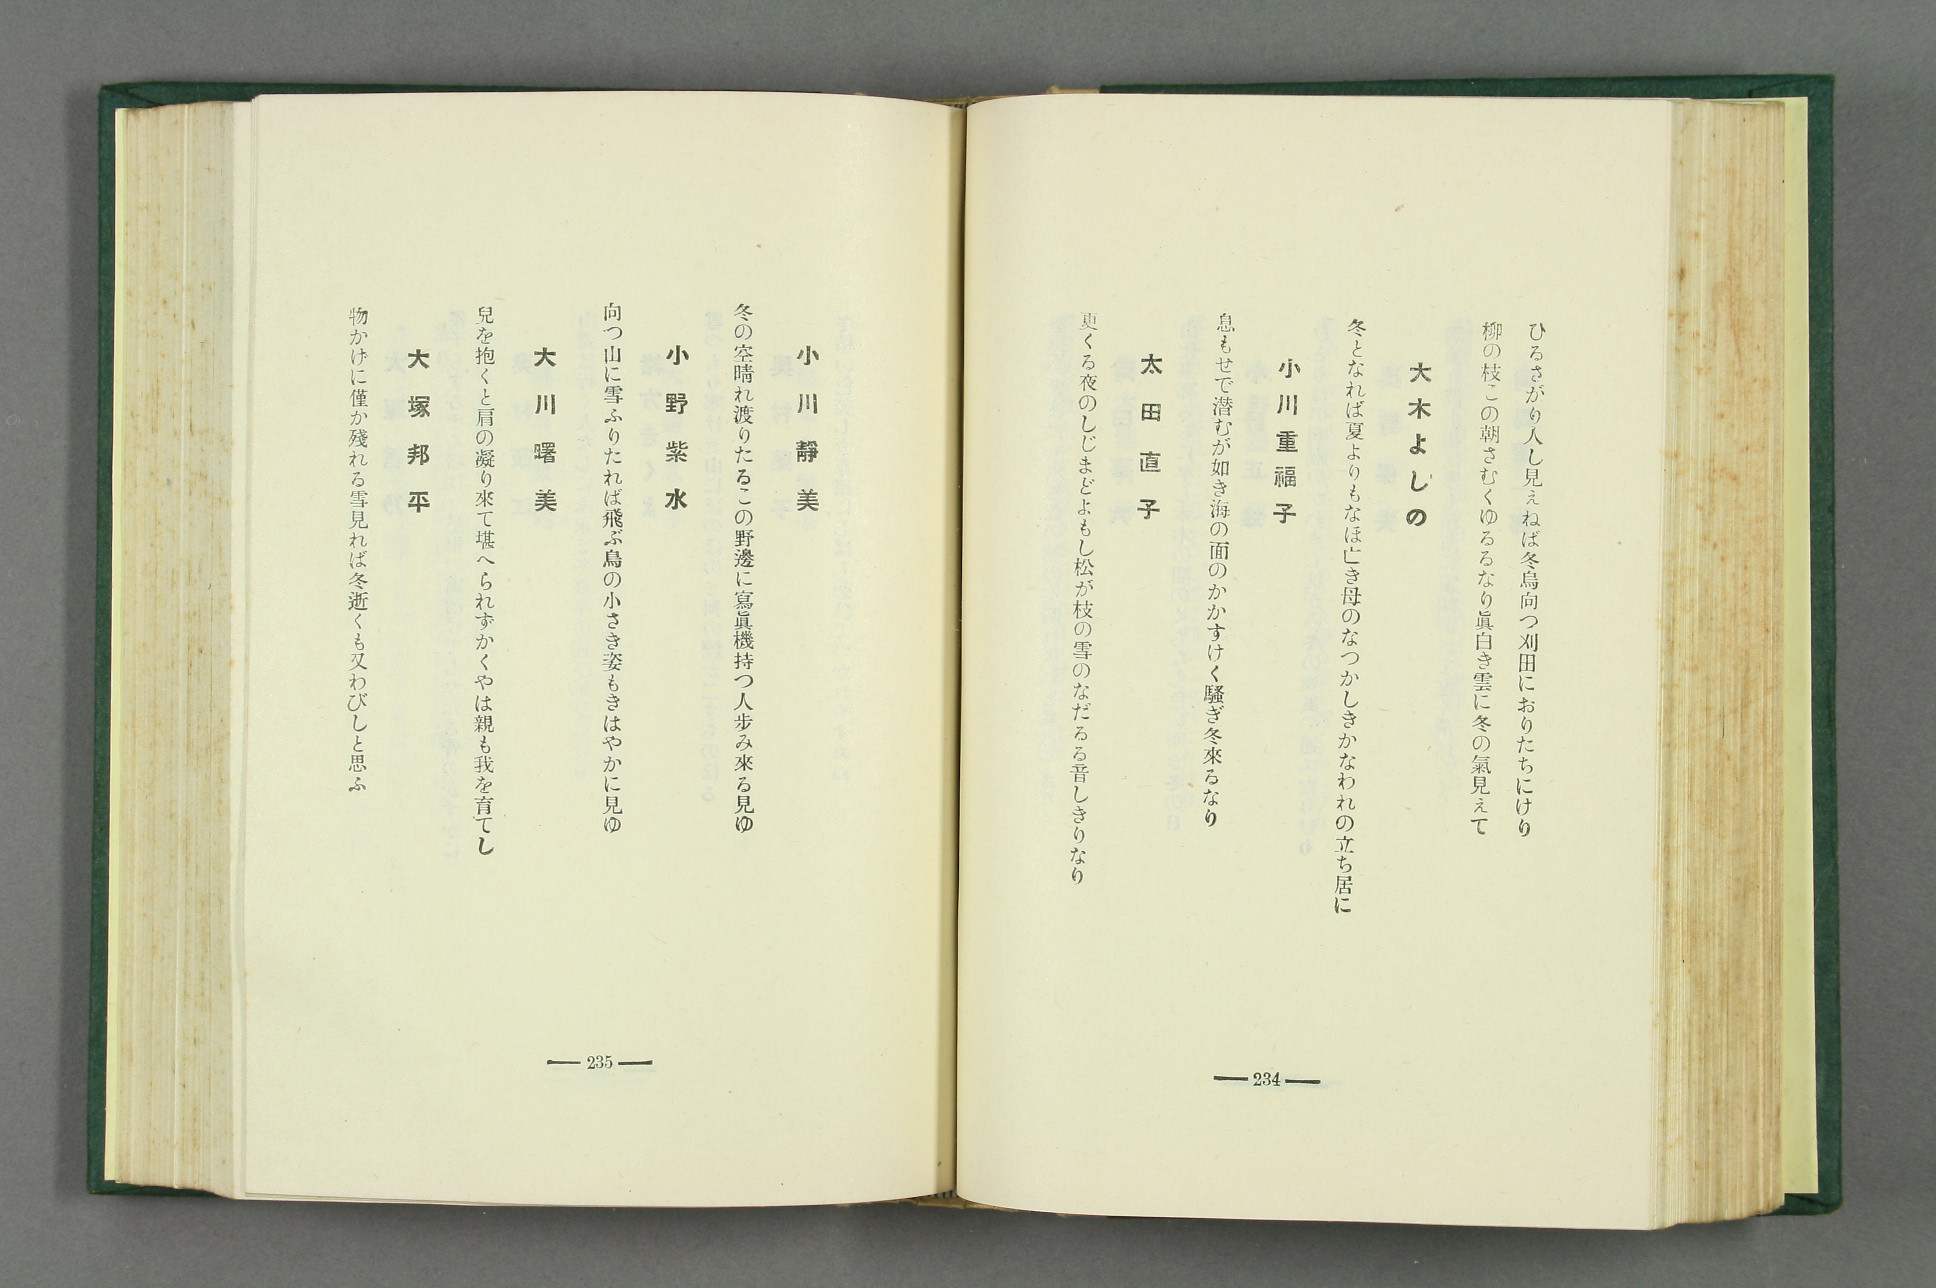 ひるさがり人し見えねば冬烏向つ刈田におりたちにけり
柳の枝この朝さむくゆるるなり眞白き雲に冬の氣見えて
大木よしの
冬となれば夏よりもなほ亡き母のなつかしきかなわれの立ち居に
小川重福子
息もせで潜むが如き海の面のかかすけく騷ぎ冬來るなり
太田直子
更くる夜のしじまどよもし松が枝の雪のなだるる音しきりなり
234
小川靜美
冬の空晴れ渡りたるこの野邊に寫眞機持つ人歩み來る見ゆ
小野紫水
向つ山に雪ふりたれば飛ぶ鳥の小さき姿もきはやかに見ゆ
大川曙美
兒を抱くと肩の凝り來て堪へられずかくやは親も我を育てし
大塚邦平
物かげに僅か殘れる雪見れば冬逝くも又わびしと思ふ
235